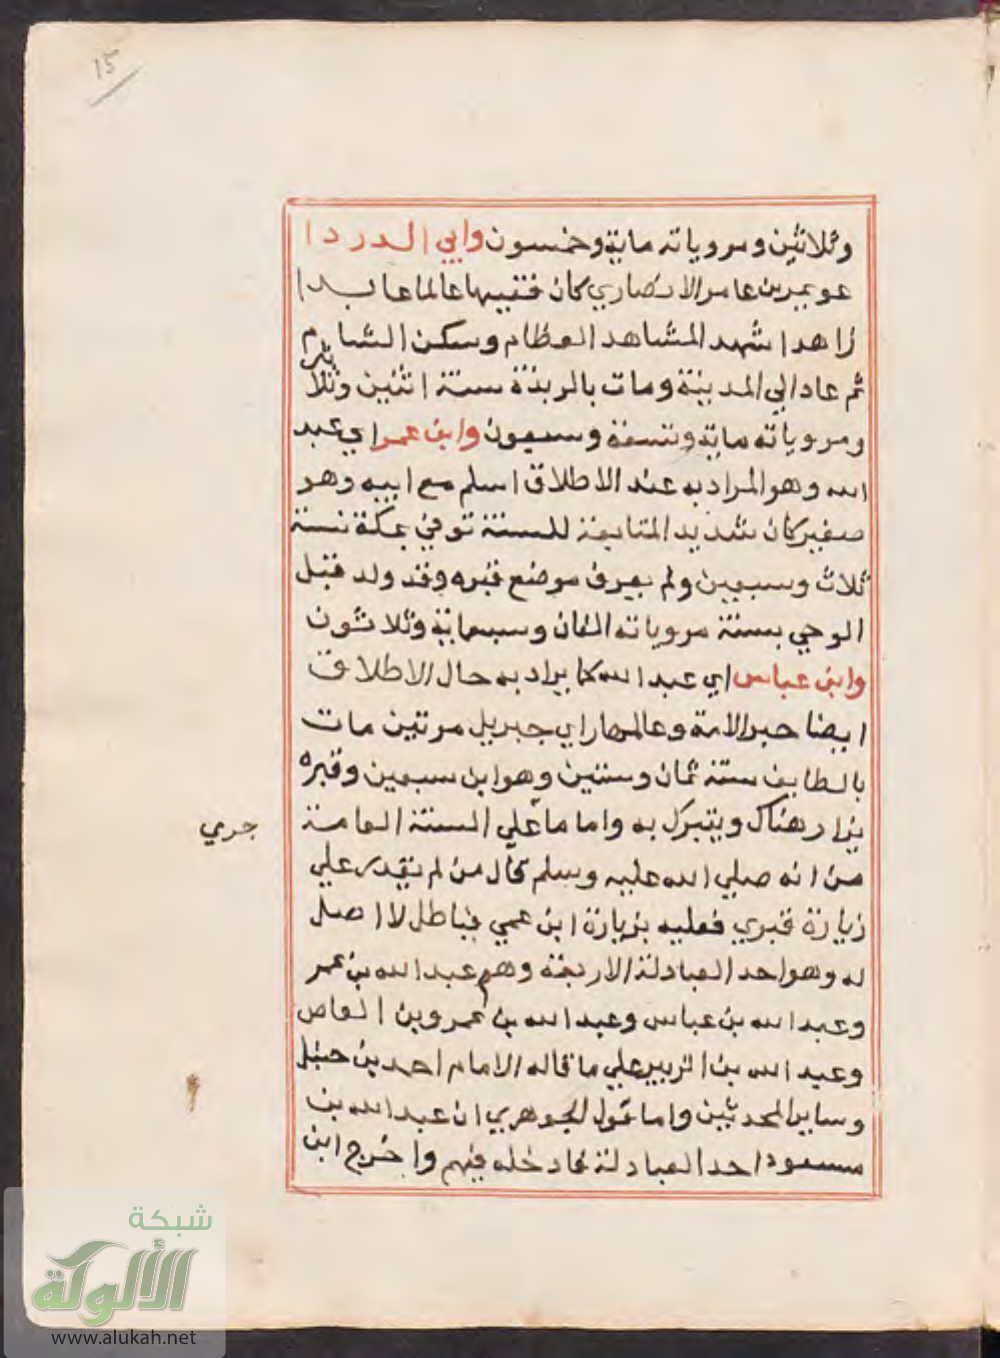 15
وثلاثين ومروياته ماية وخمسون وابي الدردا
عويمر بن عامر الانصاري كان فقيها عالما عابدا
زاهدا شهد المشاهد العظام وسكن الشام
ثم عاد الي المدينة ومات بالربذة سنة اثنين وثلاثين
ومروياته ماية وتسعة وسبعون وابن عمر اي عبد
الله وهو المراد به عند الاطلاق اسلم مع ابيه وهو
صغير كان شديد المتابعة للسنة توفي بمكة سنة
ثلاث وسبعين ولم يعرف موضع قبره وقد ولد قبل
الوحي بسنة مروياته الفان وسبعماية وثلاثون
وابن عباس اي عبد الله كما يراد به حال الاطلاق
ايضا حبر الامة وعالمها راي جبريل مرتين مات
بالطايف سنة ثمان وستين وهو ابن سبعين وقبره
يزار هناك ويتبرك به واما ما علي السنة العامة
جري
من انه صلي الله عليه وسلم قال من لم يقدر علي
زيارة قبري فعليه بزيارة ابن عمي فباطل لا اصل
له وهو احد العبادلة الاربعة وهم عبد الله بن عمر
وعبد الله بن عباس وعبد الله بن عمرو بن العاص
وعبد الله بن الزبير علي ما قاله الامام احمد بن حنبل
وساير المحدثين واما قول الجوهري ان عبد الله بن
مسعود احد العبادلة فادخله فيهم واخرج ابن
شبكة
الألوكة
www.alukah.net